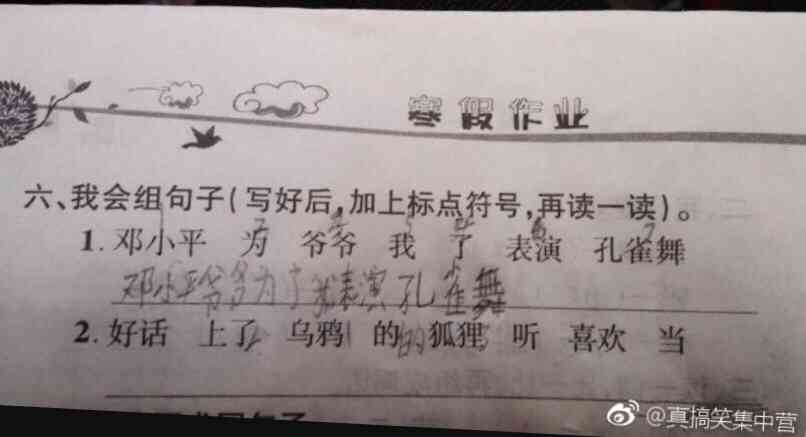 寒假作业
六、我会组句子(写好后,加上标点符号,再读一读)。
1.邓小平 为 爷爷 我 了 表演 孔雀舞
邓小平爷爷为了我表演孔雀舞
2.好话 上了 乌鸦 的 狐狸 听 喜欢 当
@真搞笑集中营